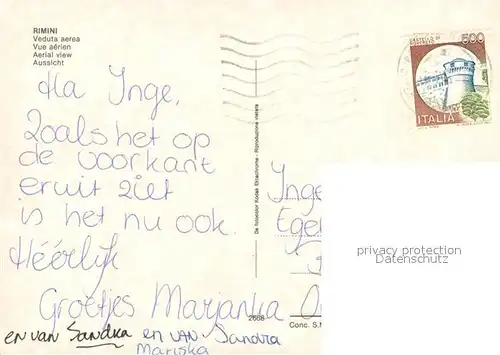 RIMINI
Veduta aerea
Vue aérien
Aerial view
Aussicht
CASTELLO DI
500
ITALIA
Ha Inge,
Zoals het op
de voorkant
eruit ziet
is het nu ook.
Héérlijk
Groetjes Marjanka
en van Sandra en van Sandra
Mariska
Da fotocolor Kodak Ektachrome - Riproduzione vietata
2668
Conc. S.M
Inge
Egel
privacy protection
Datenschutz